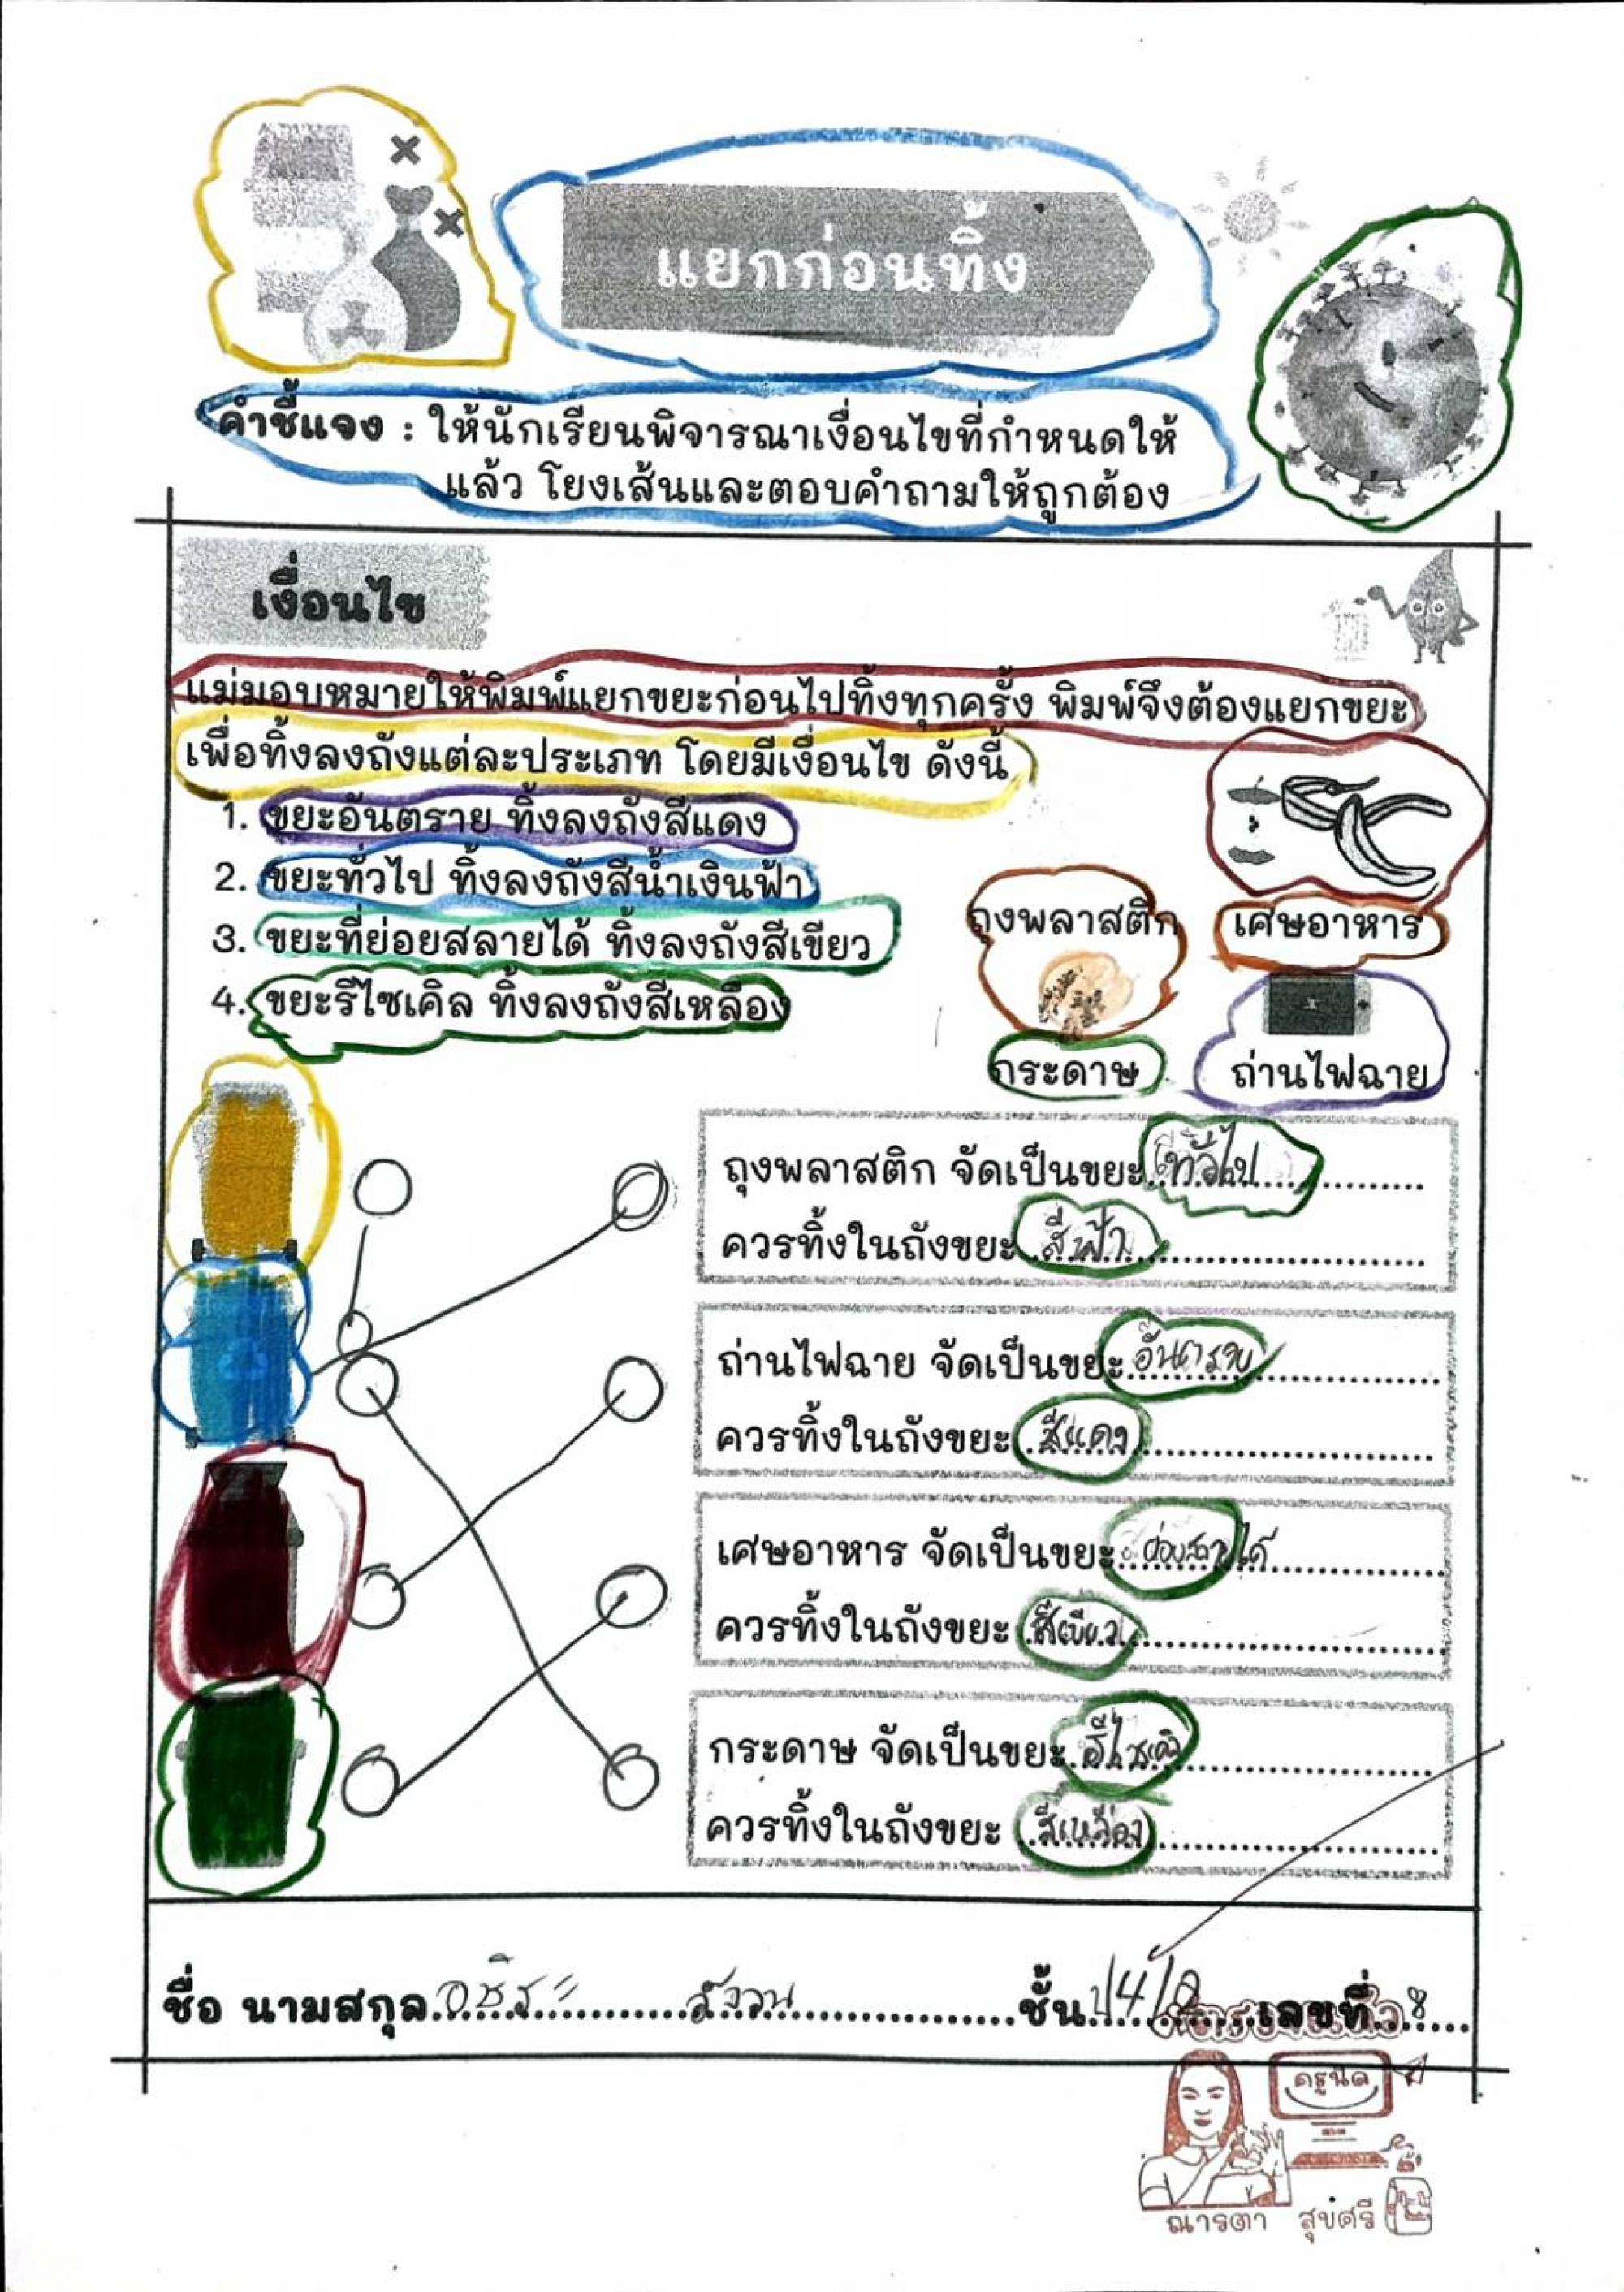 แยกก่อนทิ้ง
คำชี้แจง : ให้นักเรียนพิจารณาเงื่อนไขที่กำหนดให้
แล้ว โยงเส้นและตอบคำถามให้ถูกต้อง
เงื่อนไข
แม่มอบหมายให้พิมพ์แยกขยะก่อนไปทิ้งทุกครั้ง พิมพ์จึงต้องแยกขยะ
เพื่อทิ้งลงถังแต่ละประเภท โดยมีเงื่อนไข ดังนี้
1. ขยะอันตราย ทิ้งลงถังสีแดง
2. ขยะทั่วไป ทิ้งลงถังสีน้ำเงินฟ้า
3. ขยะที่ย่อยสลายได้ ทิ้งลงถังสีเขียว
4. ขยะรีไซเคิล ทิ้งลงถังสีเหลือง
ถุงพลาสติก เศษอาหาร
กระดาษ ถ่านไฟฉาย
ถุงพลาสติก จัดเป็นขยะ ทั่วไป
ควรทิ้งในถังขยะ สีฟ้า
ถ่านไฟฉาย จัดเป็นขยะ
ควรทิ้งในถังขยะ สีแดง
เศษอาหาร จัดเป็นขยะ ย่อยสลายได้
ควรทิ้งในถังขยะ สีเขียว
กระดาษ จัดเป็นขยะ
ควรทิ้งในถังขยะ สีเหลือง
ชื่อ นามสกุล ชั้น ป4/ เลขที่ 8
ครูนิด
ณารตา สุขศรี